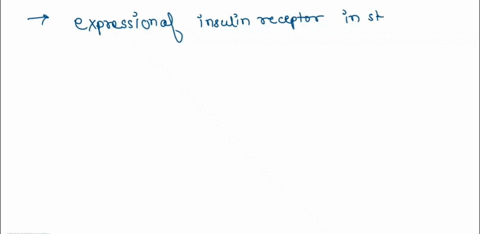 → expressional insulin receptor in st